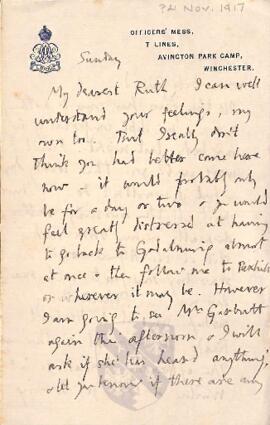 P.M. NOV. 1917
OFFICERS' MESS,
7 LINES,
AVINGTON PARK CAMP,
WINCHESTER.
Sunday
My dearest Ruth, I can well
understand your feelings, my
own too. But I really don't
think you had better come here
now – it would probably only
be for a day or two & you would
feel greatly distressed at having
to go back to Godalming almost
at once & then follow me to
or wherever it may be. However
I am going to see Mrs
again this afternoon & I will
ask if she has heard anything,
& let you know if there are any